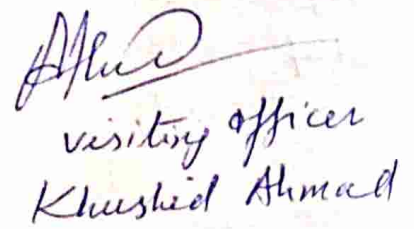 visiting officer
Khushid Ahmad